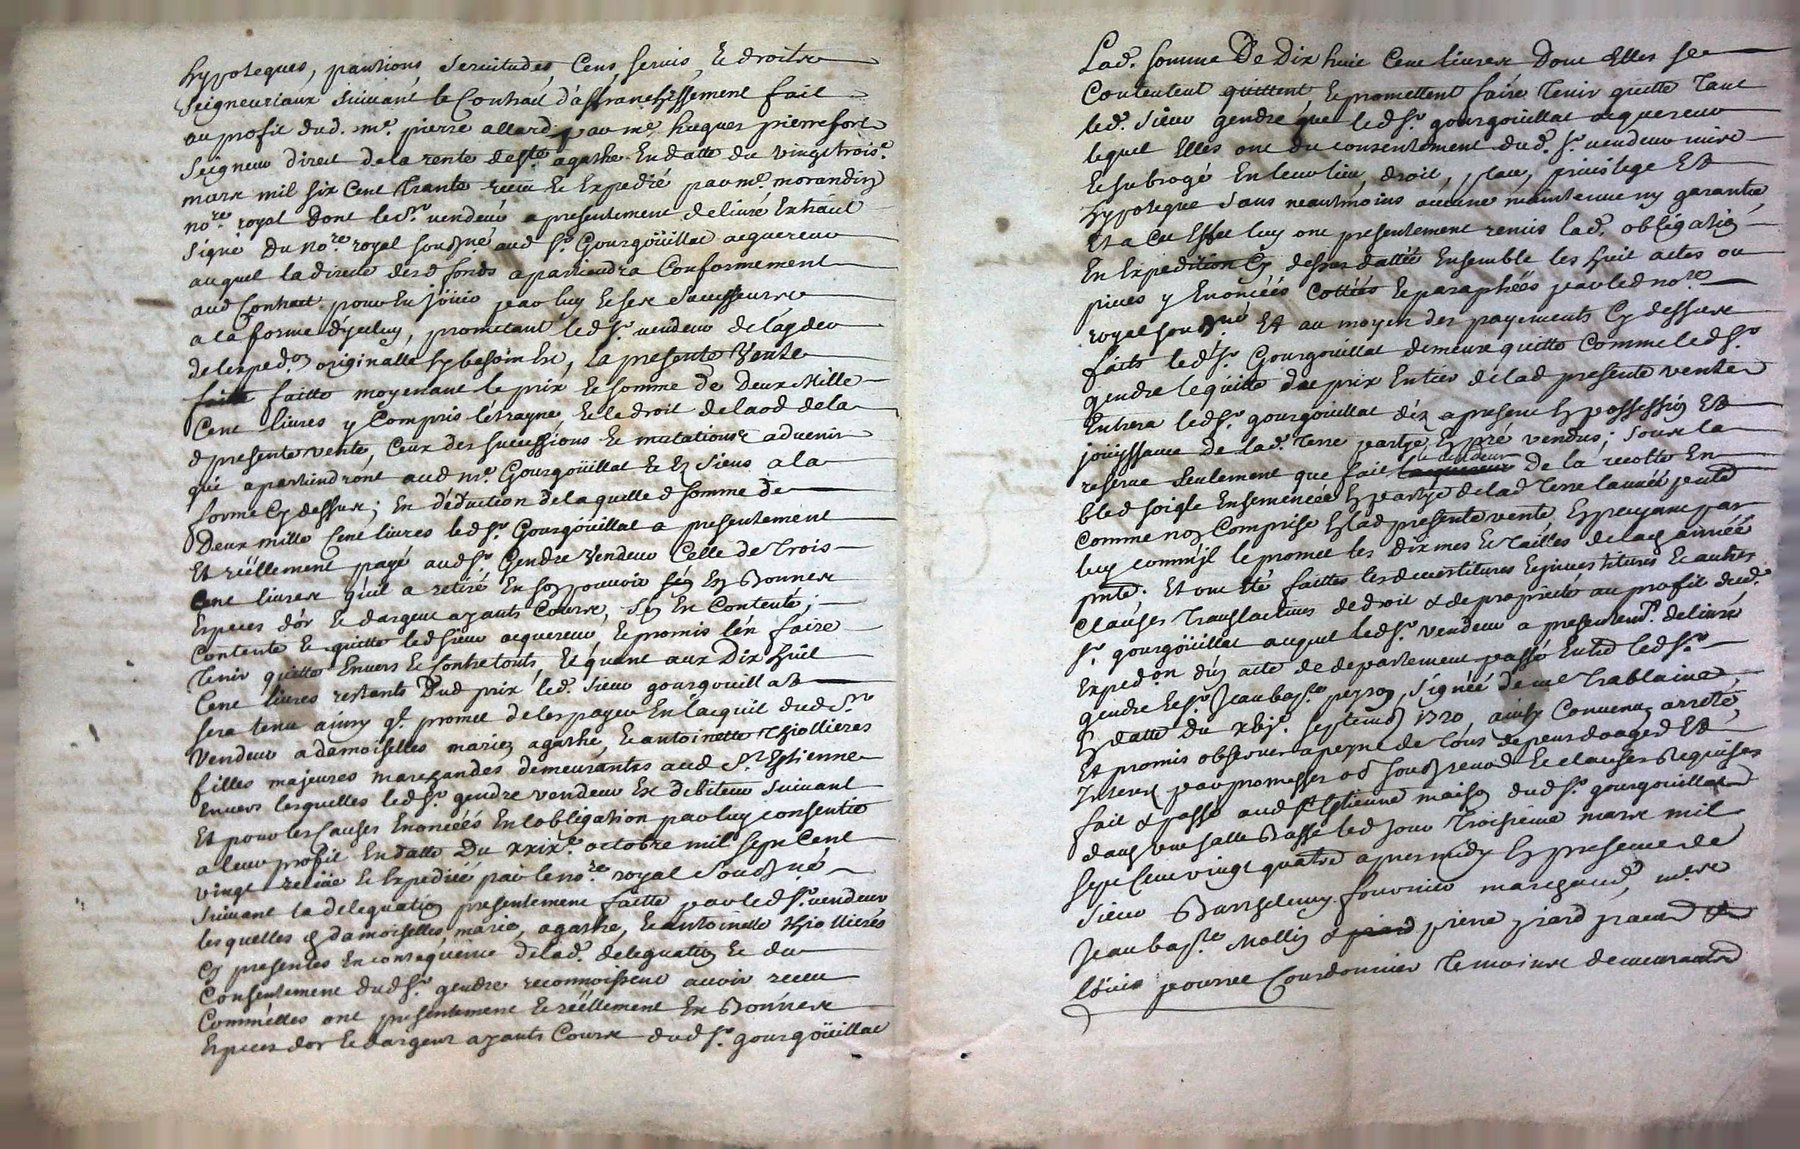 hypoteques, pantions servitudes Cens servis, et droits
seigneuriaux suivant le Contract d'affranchissement fait
au profit dud. me. pierre allard par me. hugues pierrefort
seigneur direct de la rente de ste agathe En datte du vingt trois.e
mars mil six Cent Trante receu et Expedié par me. morandin
no.re royal Dont led. sr. vendeur a presentement delivré Extrait
signé Du no.re royal soubsné aud. sr. Gourgoüillat acquereur
auquel la directe desd. fonds apartiendra Conformement
aud. Contract pour En joüir par luy et ses successeurs
a la forme d'yceluy, promettant led. sr. vendeur de
de lexped.on originalle sy besoin Est, La presente Vente
faitte moyenant le prix et somme de Deux Mille
Cent livres y Compris et le droit de laod de la
d. presente vente, Ceux des successions et mutations advenir
qui apartiendront aud. me. Gourgoüillat et Es siens a la
forme Cy dessus; En deduction de laquelle d. somme de
Deux mille Cent livres led. sr. Gourgoüillat a presentement
Et réellement payé aud. sr. Gendre Vendeur Celle de Trois
Cent livres qu'il a retiré En son pouvoir En Bonnes
Especes d'or et dargent ayants Cours, sen En Contenté;
Contente et quitte led. sieur acquereur, et promis l'en faire
Tenir quitte Envers et Contre touts, Et quant aux Dix huit
Cent livres restants Dud. prix, led. sieur gourgouillat
sera tenu ainsy ql. promet de les payer En lacquit dud. sr.
Vendeur a damoiselles marie, agathe, et antoinette Thiollieres
filles majeures marchandes demeurantes aud. St. Estienne
Envers lesquelles led. sr. gendre vendeur Est debiteur suivant
Et pour les Causes Enoncées En lobligation par luy consentie
a leur profit En datte Du xxix.e octobre mil sept Cent
vingt receüe et Expediée par le no.re royal soubsné
suivant la delegation presentement faitte par led. sr. vendeur
lesquelles d. damoiselles marie, agathe, et antoinette Thiollieres
Cy presentes En consequence de lad. delegation et du
Consentement dud. sr. gendre reconnoissent avoir receu
Comm'elles ont presentement et réellement En Bonnes
Especes dor et dargent ayants Cours dud. sr. gourgoüillat
Lad. somme De Dix huit Cent livres Dont Elles se
Contentent quittent et promettent faire Tenir quitte Tant
led. sieur gendre que led. sr. gourgoüillat acquereur
lequel Elles ont du consentement dud. sr. vendeur mis
et subrogé En leur lieu, droit, place, privilege Et
hypoteque sans neantmoins aucune maintenue ny garantie,
Et a Cet Effet luy ont presentement remis lad. obligation
En Expedition Cy dessus dattée Ensemble les huit actes ou
pieces y Enoncées Cottées et paraphées par led. no.re
royal soubsné Et au moyen des payements Cy dessus
faits led. sr. Gourgouillat demeure quitte Comme led. sr.
gendre le quitte du prix Entier de lad. presente vente
Entrera led. sr. gourgouillat dés a present En possession Et
joüissance de lad. Terre partye En pré vendus; sous la
reserve seulement que fait le vendeur de la recolte En
bled soigle Ensemencée En partye de lad. Terre lannée pnte
Comme non Comprise En lad. presente vente En payant par
luy comm'jl le promet les dixmes et Tailles de lad. année
pnte. Et ont Eté faittes les devestitures Envestitures et autres
Clauses Translatives de droit & de proprieté au profit dud.
sr. gourgoüillat auquel led. sr. vendeur a presentem.t delivré
Exped.on d'un acte de departement passé Entre led. sr.
gendre Et sr. Jean bap.te peyron, signée de me Trablaine,
En datte du xbj.e septemb. 1720, ainsy Convenu, arreté,
Et promis observer a peyne de Tous depens domages Et
Interest par promesses ob. soub. renon. et clauses Requises
fait & passé aud. St Estienne maison dud. sr. gourgouillat
dans une salle Basse led. jour Troisieme mars mil
sept Cent vingt quatre apres midy En presence de
sieur Barthelemy fournier marchand, me.
Jean bap.te Mollin & pierre
Loüis Courdonnier Temoins demeurants